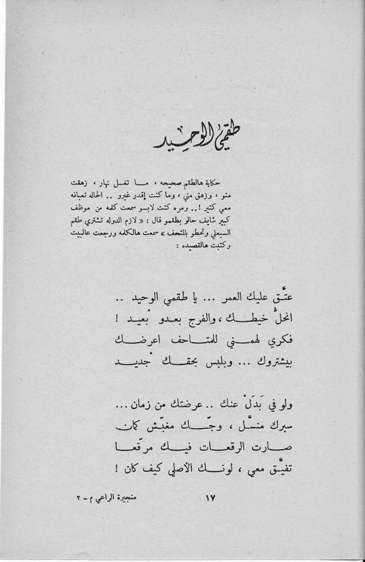 طقمي الوحيد
حكاية هالطقم صحيحه ، ما تفسل نهار ، زهقت
منو ، وزهق مني ، وما كنت إقدر غيرو .. الحاله تعبانه
معي كتير !.. ومره كنت لابسو سمعت كلمه من موظف
كبير شايف حالو بطقمو قال : « لازم الدوله تشتري طقم
السبعلي وتحطو بالمتحف » سمعت هالكلمه ورجعت عالبيت
وكتبت هالقصيده :
عتَّق عليك العمر ... يا طقمي الوحيد ..
انحلّ خيطك ، والفرج بعدو بْعيد !
فكري لهمني للمتاحف اعرضك
بيشتروك ... وبلبس بحقك جْديد
ولو في بَدَلْ عنك .. عرضتك من زمان ...
سيرك منسّل ، وجّك مغبّش كمان
صارت الرقعات فيك مرقّعا
تفيّق معي ، لونك الأصلي كيف كان !
١٧
منجيرة الراعي م - ٢